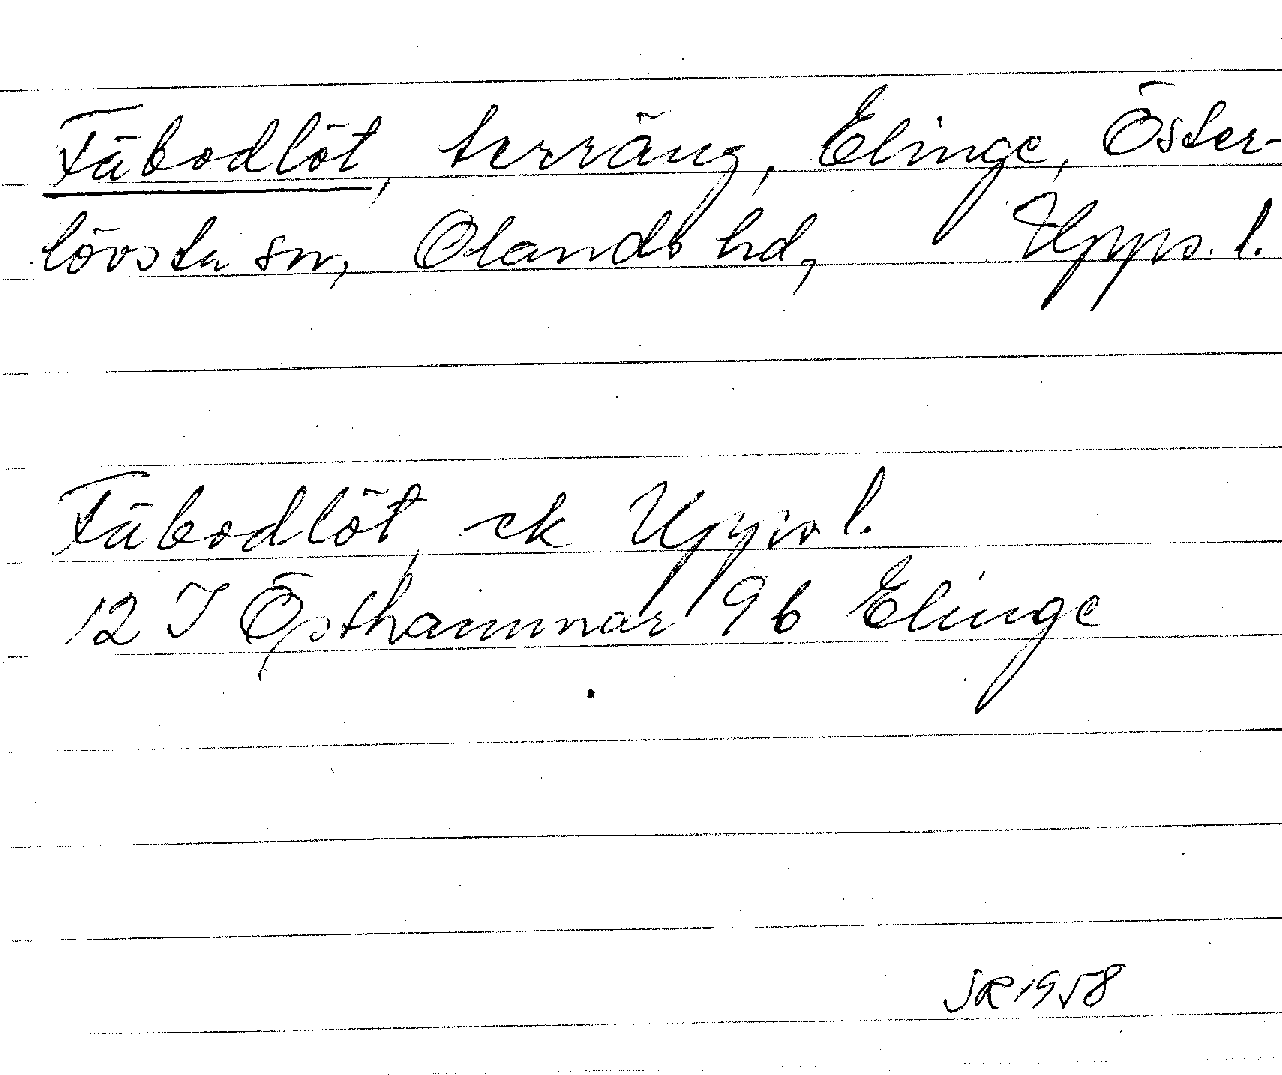 Fäbodlöt, terräng, Elinge, Öster-
lövsta sn, Olands hd, Upps. l.
Fäbodlöt, ek Upps l.
12 I Östhammar 9b Elinge
JR 1958